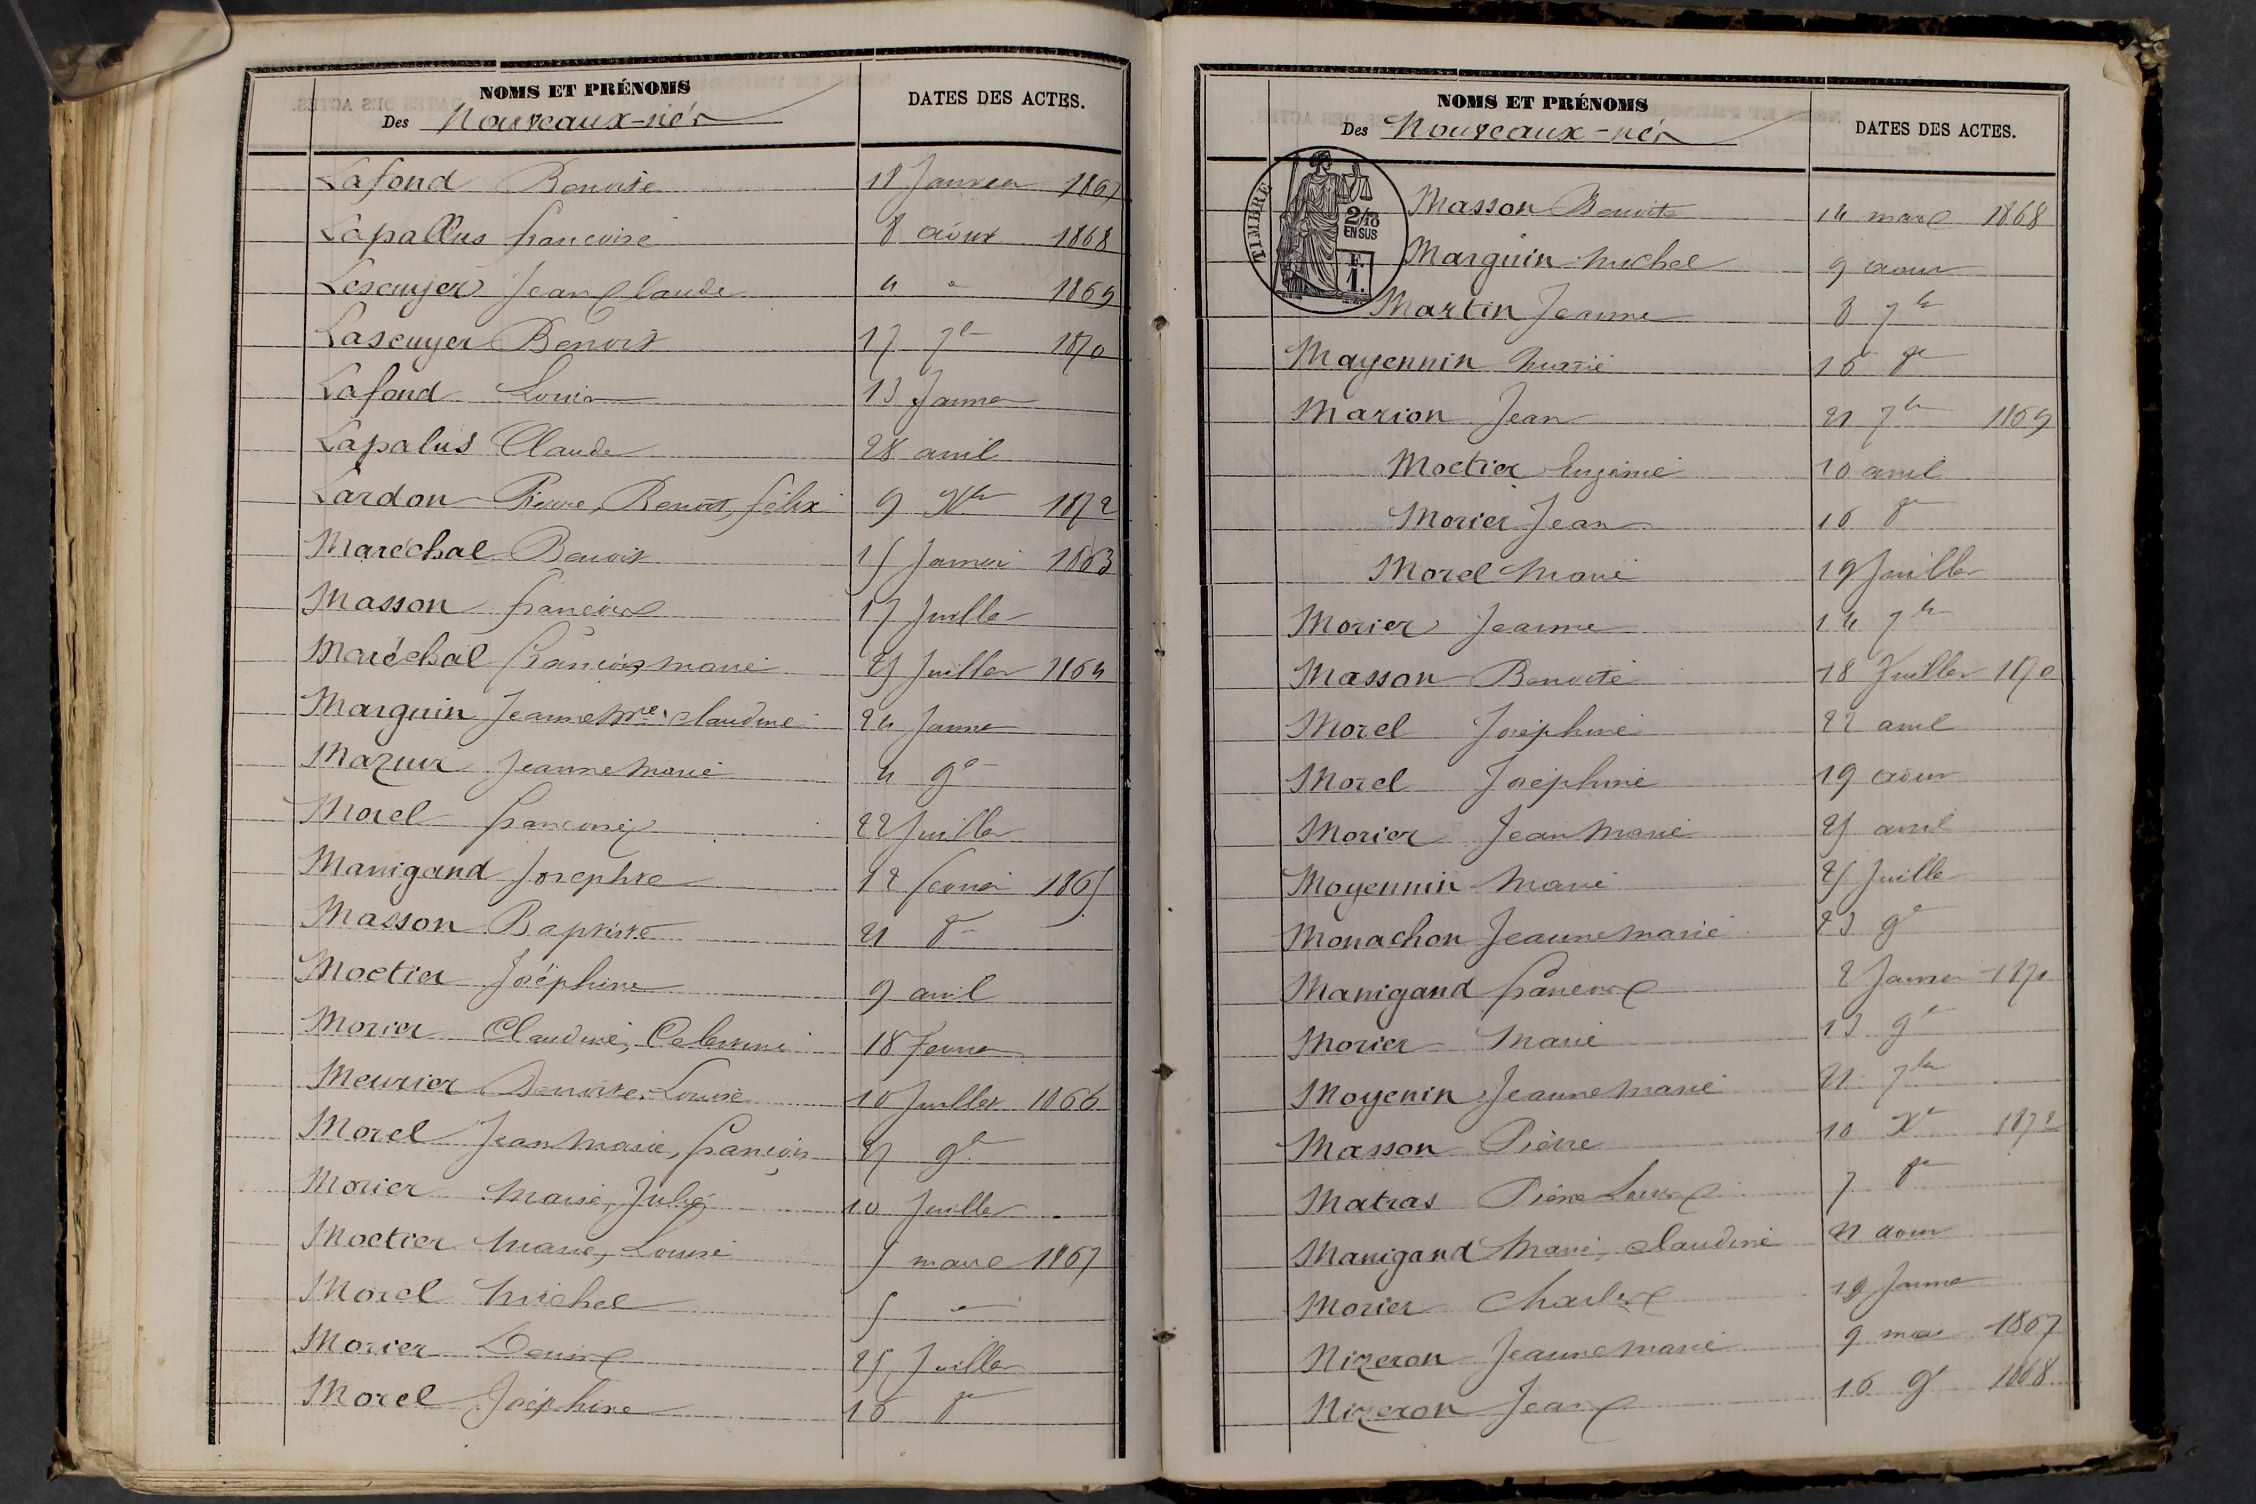 NOMS ET PRÉNOMS
Des Nouveaux-nés
DATES DES ACTES.
Lafond Benoite 18 Janvier 1867
Lapallus françoise 8 août 1868
Lescuyer Jean Claude 4 " 1869
Lascuyer Benoit 17 7bre 1870
Lafond Louis 13 Janvier
Lapalus Claude 28 avril
Lardon Pierre, Benoit, félix 9 Xbre 1872
Maréchal Benoit 15 Janvier 1863
Masson françois 17 Juillet
Maréchal françois marie 25 Juillet 1864
Marguin Jeanne Mie Claudine 24 Janvier
Mazuir Jeanne Marie 4 9e
Morel françoise 22 Juillet
Manigand Josephte 12 février 1865
Masson Baptiste 21 8e
Moctier Joséphine 9 avril
Morier Claudine, Celestine 18 fevrier
Meurier Benoite Louise 10 Juillet 1866
Morel Jean Marie, françois 27 9e
Morier Marie, Julie 10 Juillet
Moctier Marie, Louise 5 mars 1867
Morel Michel 5 "
Morier Denis 25 Juillet
Morel Joséphine 16 8e
NOMS ET PRÉNOMS
Des Nouveaux-nés
DATES DES ACTES.
TIMBRE
2/10
EN SUS
F.
1.
Masson Benoite 14 mars 1868
Marguin Michel 9 aout
Martin Jeanne 8 7bre
Mayennin Marie 16 8e
Marion Jean 21 7bre 1869
Moctier Eugénie 10 avril
Morier Jean 16 8e
Morel Marie 19 Juillet
Morier Jeanne 14 7bre
Masson Benoite 18 Juillet 1870
Morel Joséphine 22 avril
Morel Joséphine 19 aout
Morier Jean Marie 25 avril
Moyennin Marie 25 Juillet
Monachon Jeanne marie 23 9e
Manigand françois 2 Janvier 1871
Morier Marie 13 9e
Moyenin Jeanne Marie 21 7bre
Masson Pierre 10 Xe 1872
Matras Pierre Louis 7 8e
Manigand Marie, Claudine 21 aout
Morier Charles 19 Janvier
Nizeron Jeanne Marie 9 mai 1867
Nizeron Jean 16 9e 1868